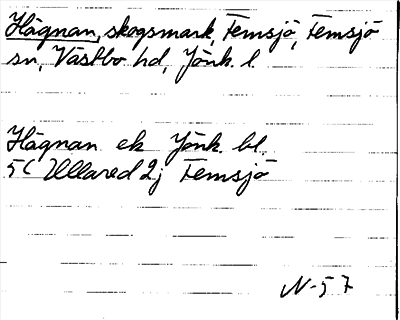 Hägnan, skogsmark, Femsjö, Femsjö
sn, Västbo hd, Jönk. l.
Hägnan ek Jönk. bl.
5C Ullared 2j Femsjö
N-57